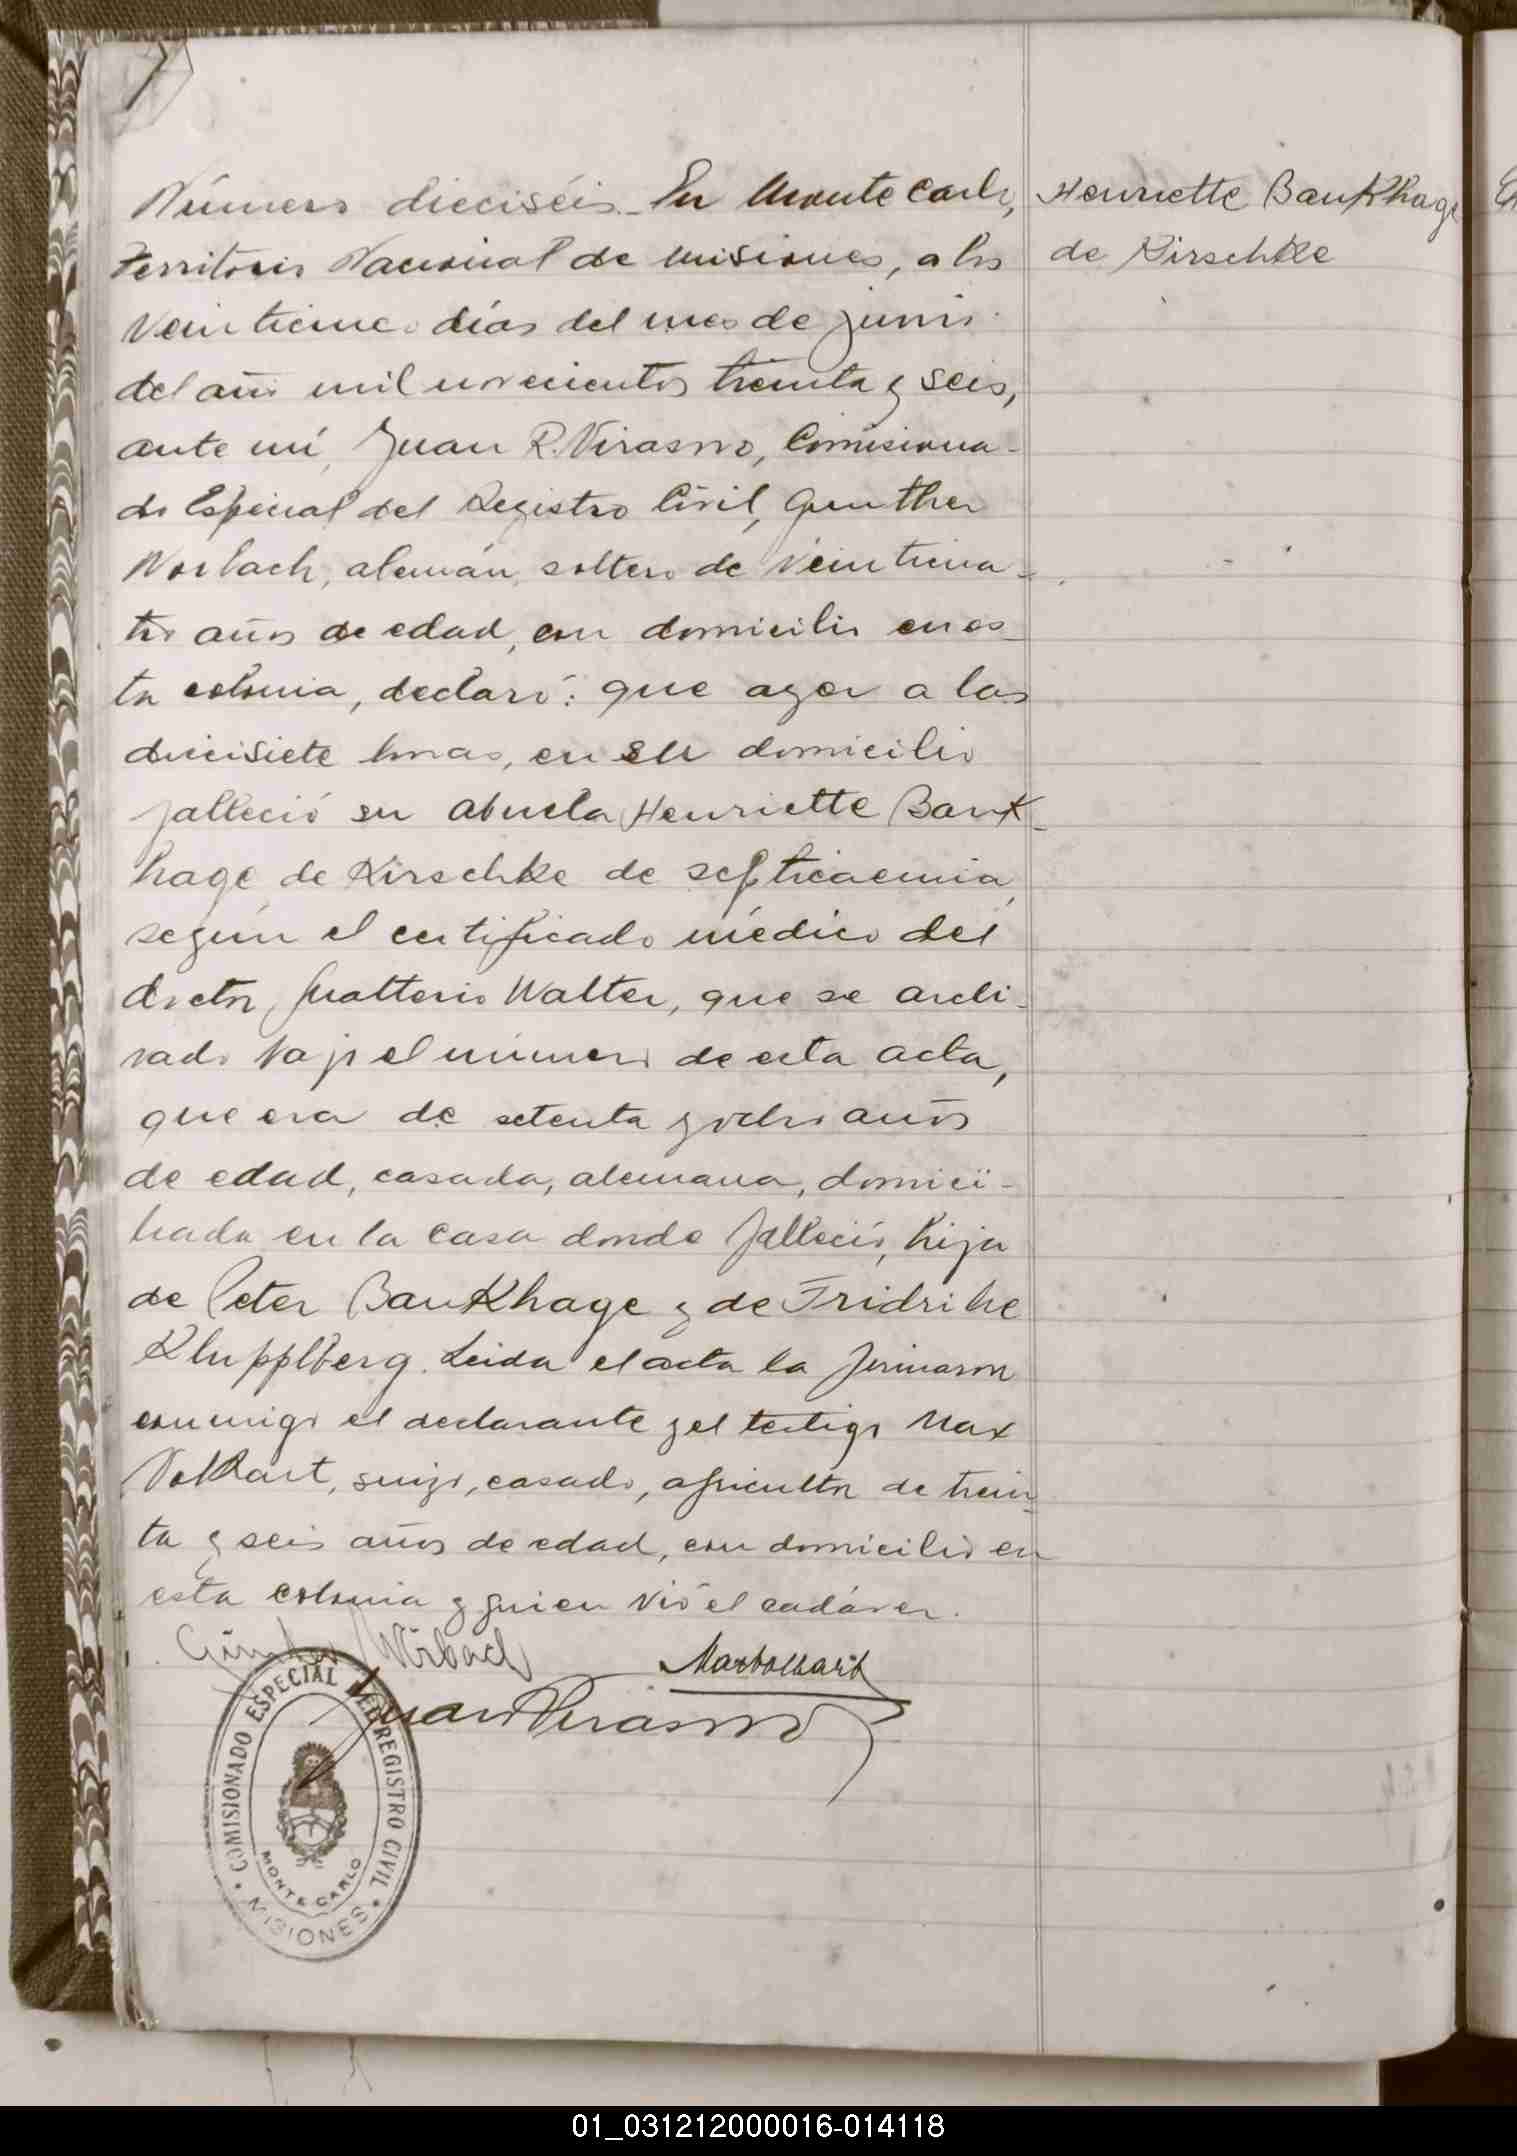 Número dieciséis. En Monte Carlo,
Territorio Nacional de Misiones, a los
veinticinco días del mes de junio
del año mil novecientos treinta y seis,
ante mí, Juan R. Virasoro, Comisiona-
do Especial del Registro Civil, Gunther
Worbach, alemán, soltero de veinticua-
tro años de edad, con domicilio en es-
ta colonia, declaró: que ayer a las
diecisiete horas, en su domicilio
falleció su abuela Henriette Bank-
hage de Kirschke de septicaemia,
según el certificado médico del
doctor Walter, que se archi-
vado bajo el número de esta acta,
que era de setenta y ocho años
de edad, casada, alemana, domici-
liada en la casa donde falleció, hija
de Peter Bankhage y de Fridrihe
Klupplberg. Leida el acta la firmaron
conmigo el declarante y el testigo Max
Volkart, suizo, casado, agricultor de trein-
ta y seis años de edad, con domicilio en
esta colonia y quien vió el cadáver.
Henriette Bankhage
de Kirschke
Max Volkart
Juan R Virasoro
COMISIONADO ESPECIAL DEL REGISTRO CIVIL
MONTE CARLO
MISIONES
01_031212000016-014118